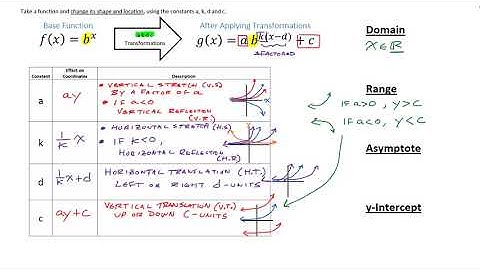 Take a function and change its shape and location, using the constants a, k, d and c.
Base Function
f(x) = b^x
Transformations
After Applying Transformations
g(x) = a b^k(x-d) + c
FACTORED
Domain
x ∈ ℝ
Range
if a>0, y>c
if a<0, y<c
Asymptote
y-Intercept
Constant
Effect on Coordinates
Description
a
ay
• VERTICAL STRETCH (V.S)
BY A FACTOR OF a
• IF a<0
VERTICAL REFLECTION
(V.R)
k
1/k x
• HORIZONTAL STRETCH (H.S)
• IF k<0,
HORIZONTAL REFLECTION
(H.R)
d
1/k x+d
HORIZONTAL TRANSLATION (H.T.)
LEFT OR RIGHT d-UNITS
c
ay+c
VERTICAL TRANSLATION (V.T.)
UP OR DOWN C-UNITS